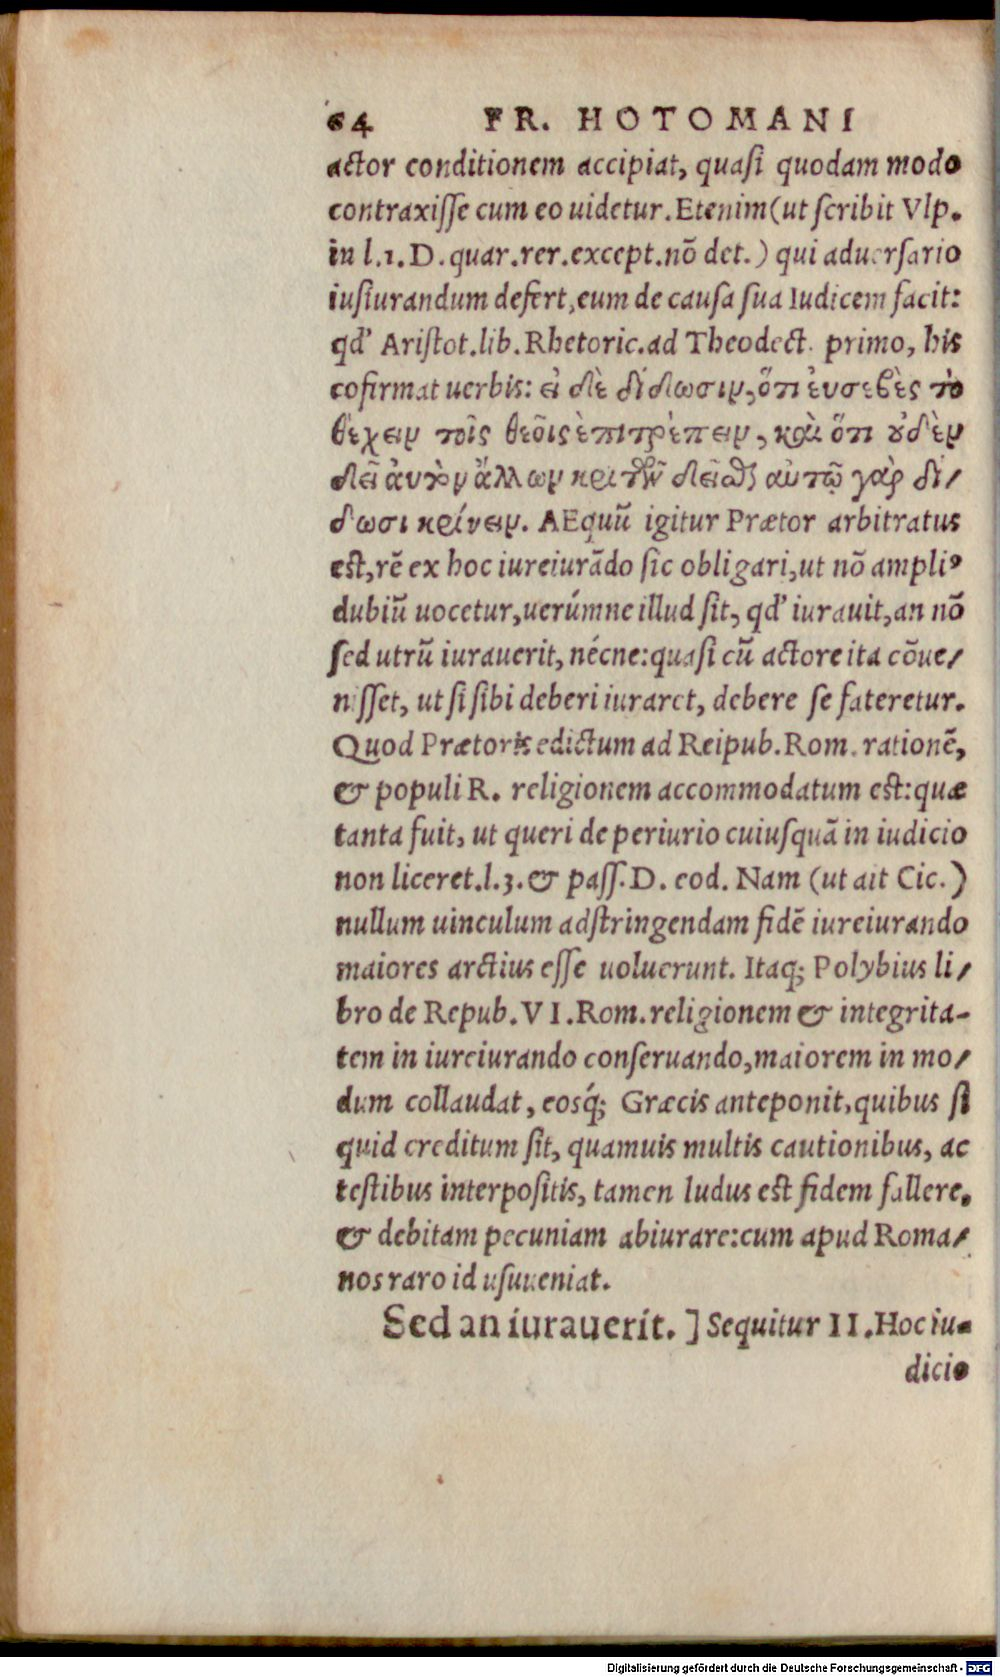 64 FR. HOTOMANI
actor conditionem accipiat, quasi quodam modo
contraxisse cum eo uidetur. Etenim (ut scribit Vlp.
in l.1.D. quar. rer. except. nō det.) qui aduersario
iusiurandum defert, eum de causa sua Iudicem facit:
qd' Aristot. lib. Rhetoric. ad Theodect. primo, his
cofirmat uerbis: εἰ δὲ δίδωσιν, ὅτι ἐυσεβὲς τὸ
θέχειν τοῖς θεοῖς ἐπιτρέπειν, καὶ ὅτι οὐδὲν
δεῖ ἀυτὸν ἄλλων κριτῶν δεῖσθαι αὐτῷ γὰρ δί/
δωσι κρίνειν. AEquū igitur Prætor arbitratus
est, rē ex hoc iureiurādo sic obligari, ut nō ampli⁹
dubiū uocetur, uerúmne illud sit, qd' iurauit, an nō
sed utrū iurauerit, nécne: quasi cū actore ita cōue/
nisset, ut si sibi deberi iuraret, debere se fateretur.
Quod Prætoris edictum ad Reipub. Rom. rationē,
& populi R. religionem accommodatum est: quæ
tanta fuit, ut queri de periurio cuiusquā in iudicio
non liceret. l.3. & pass. D. eod. Nam (ut ait Cic.)
nullum uinculum adstringendam fidē iureiurando
maiores arctius esse uoluerunt. Itaq; Polybius li/
bro de Repub. VI. Rom. religionem & integrita-
tem in iureiurando conseruando, maiorem in mo/
dum collaudat, eosq́; Græcis anteponit, quibus si
quid creditum sit, quamuis multis cautionibus, ac
testibus interpositis, tamen ludus est fidem fallere,
& debitam pecuniam abiurare: cum apud Roma/
nos raro id usuueniat.
Sed an iurauerit. ] Sequitur II. Hoc iu-
dicio
Digitalisierung gefördert durch die Deutsche Forschungsgemeinschaft - DFG